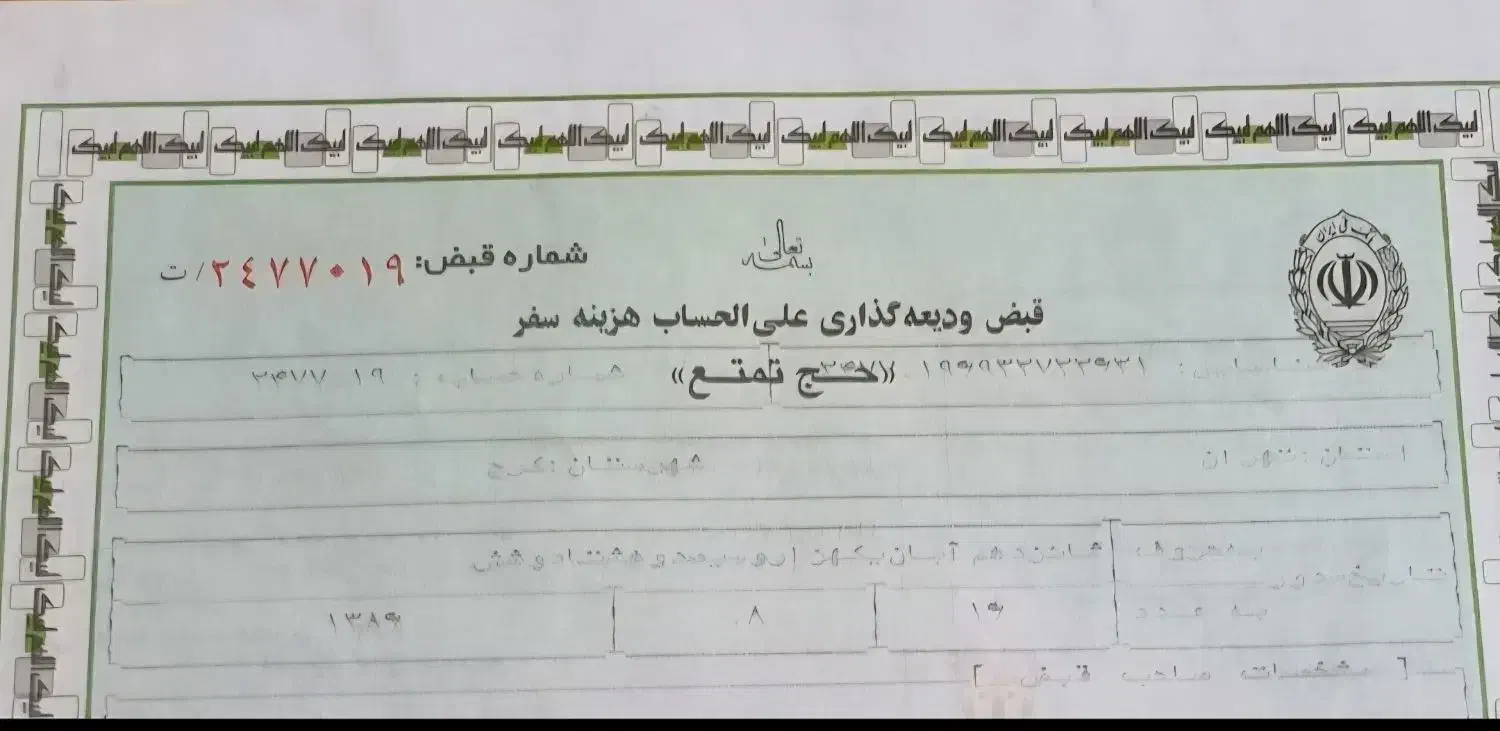 لبیک اللهم لبیک لبیک اللهم لبیک لبیک اللهم لبیک لبیک اللهم لبیک لبیک اللهم لبیک لبیک اللهم لبیک لبیک اللهم لبیک لبیک اللهم لبیک لبیک اللهم لبیک لبیک اللهم لبیک
بانک ملی ایران
بسمه تعالی
شماره قبض: ۲۴۷۷۰۱۹/ت
قبض ودیعه‌گذاری علی‌الحساب هزینه سفر
«حج تمتع»
شماره حساب : ۲۴۷۷۰۱۹
استان : تهران شهرستان : کرج
تاریخ صدور بحروف شانزدهم آبان یکهزاروسیصدوهشتادوشش
به عدد ۱۶ ۸ ۱۳۸۶
[ مشخصات صاحب قبض ]